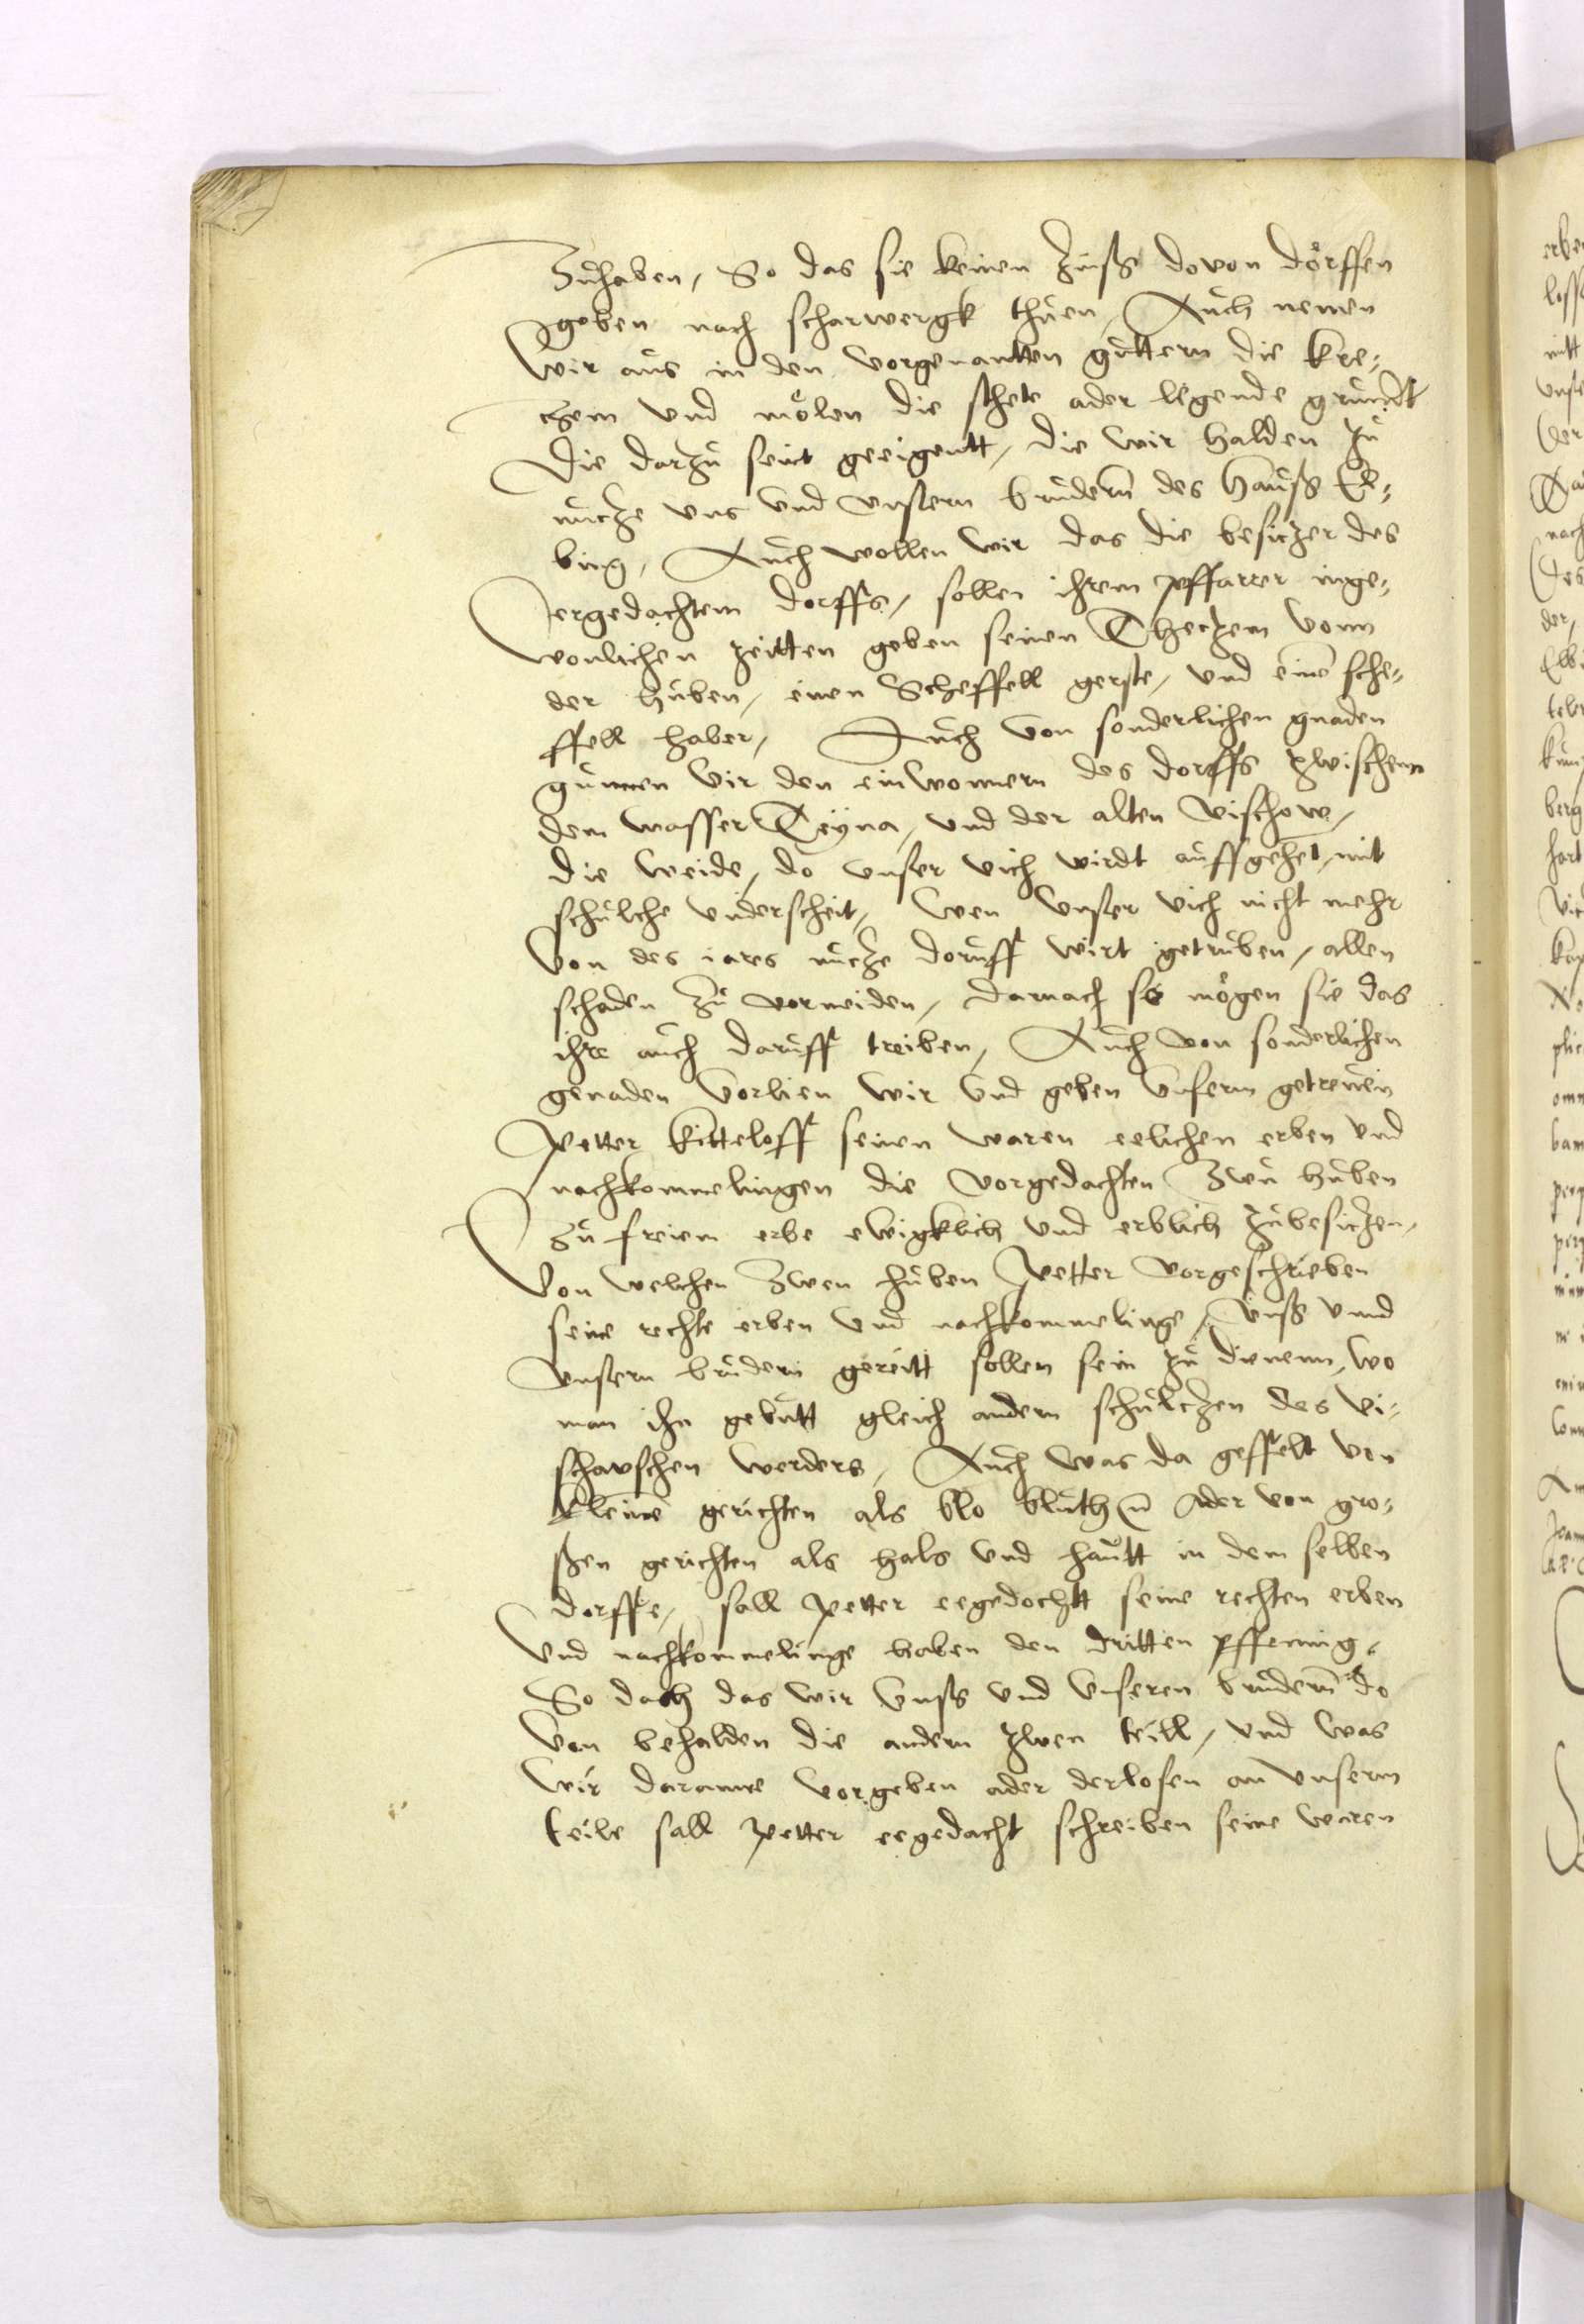 Zuhaben, So das sie keinen Zinß dovon dörffen
geben nach scharwergk thuen, Auch nemen
wir aus in den vorgenantten guttern die kre-
czem vnd mölen die schete ader legende grundt
die darzu seint geeigentt, die wir halden zu
nucze vns vnd vnsern brudern des hauß El-
bing, Auch wollen wir das die besiczer des
vergedachtem dorffs, sollen ihrem pffarrer inge-
wonlichen zeitten geben seinen Theczem vonn
der huben, einen Scheffell gerste, vnd eine sche-
ffell haber, Auch von sonderlichen gnaden
gunnen wir den einwonnern des dorffs zwischenn
dem wasser Teyna, vnd der alten vischow,
die weide, do vnser vich wirdt auffgehet, mit
schulche vnderscheit, wen vnser vich nicht mehr
von des iares nucze doruff wirt getruben, allen
schaden zu vormeiden, darnach so mögen sie das
ihre auch daruff treiben, Auch von sonderlichen
genaden vorlien wir vnd geben vnserm getreuen
Petter kitteloff seinen waren eelichen erben vnd
nachkommelingen die vorgedachten Zwu huben
zu freiem erbe ewigklich vnd erblich zubesiczen,
von welchen Zwen huben Petter vorgeschrieben
seine rechte erben vnd nachkommelinge, vnß vnnd
vnsern brudern gereitt sollen sein zu dienenn, wo
man ihn gebutt gleich andern schulczen des vi-
schavschen werders, Auch was da geffelt von
kleine gerichten als blo bluth ader von gro-
ßen gerichten als hals vnd hautt in dem selben
dorffe, sall petter eegedochtt seine rechten erben
vnd nachkommelinge haben den dritten pffennig,
So doch das wir vnß vnd vnseren brudern do
von behalden die andern zwen teill, vnd was
wir daranne vorgeben ader derlosen an vnserm
teile sall petter eegedacht schreiben seine waren